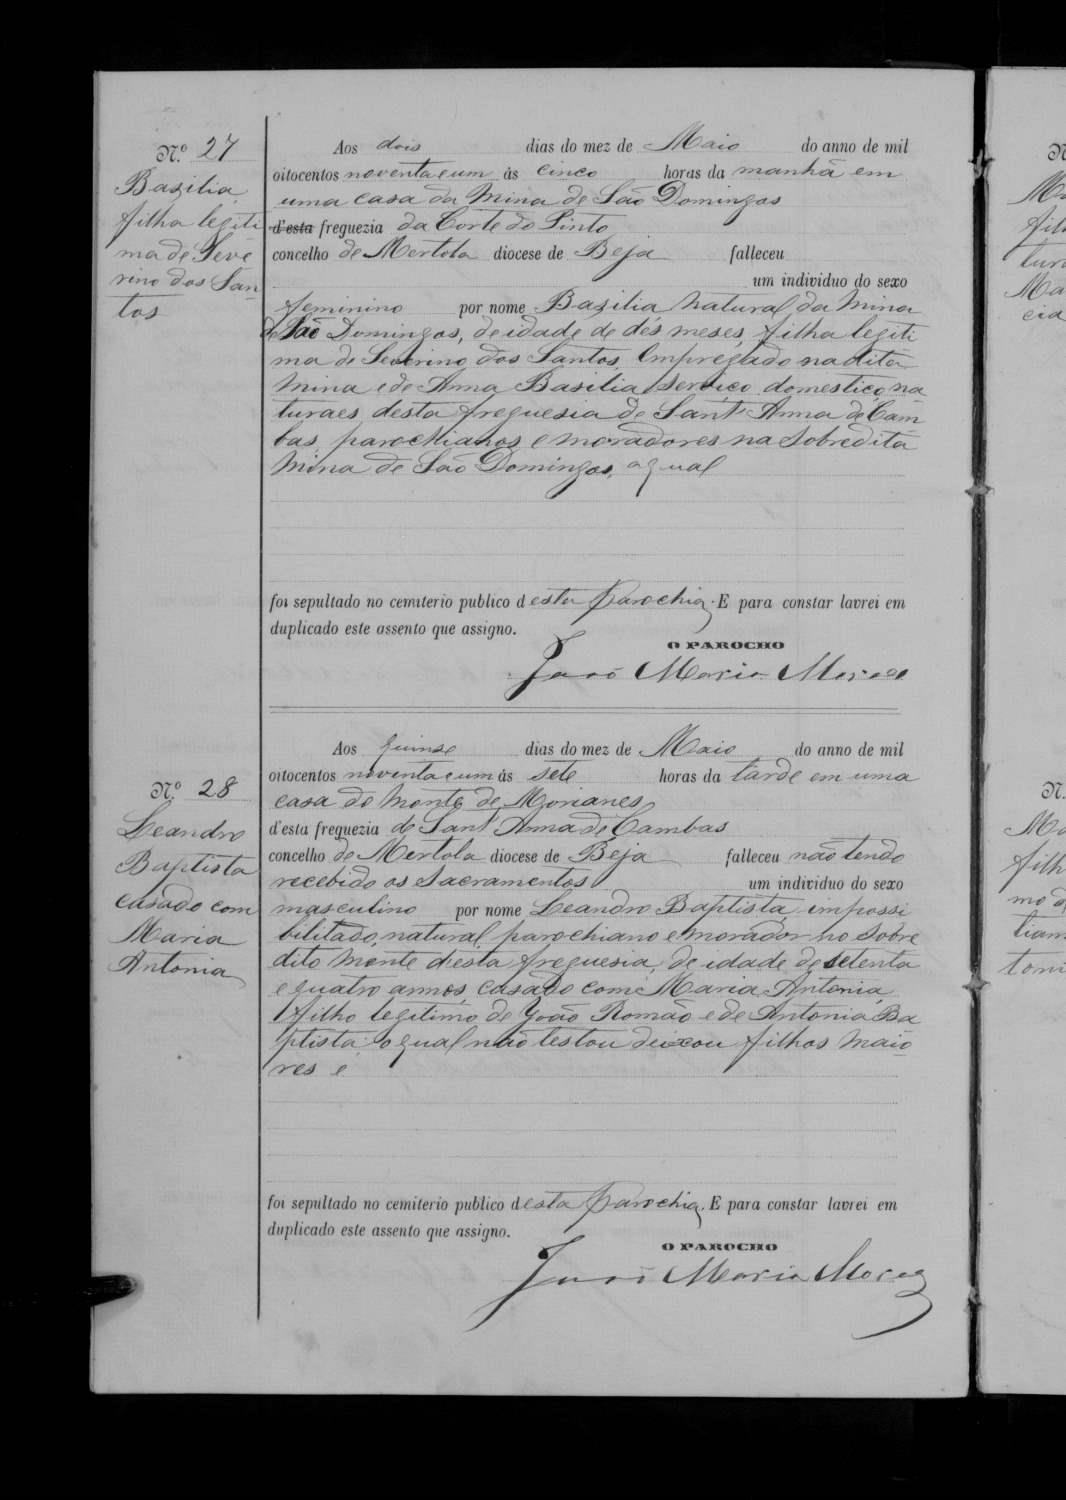 N.º 27
Bazilia,
filha legiti
ma de Seve
rino dos San
tos
Aos dois dias do mez de Maio do anno de mil
oitocentos noventa e um ás cinco horas da manhã em
uma casa da Mina de São Domingos
d'esta freguezia da Corte do Pinto
concelho de Mertola diocese de Beja falleceu
um individuo do sexo
feminino por nome Bazilia, natural da Mina
de São Domingos, de idade de dés meses, filha legiti
ma de Severino dos Santos Empregado na dita
Mina e de Anna Basilia, serviço domestico, na
turaes desta freguesia de Sant'Anna de Cam
bas, parochianos e moradores na sobredita
Mina de São Domingos, a qual
foi sepultado no cemiterio publico desta parochia. E para constar lavrei em
duplicado este assento que assigno.
O PAROCHO
Maria
N.º 28
Leandro
Baptista
casado com
Maria
Antonia
Aos quinse dias do mez de Maio do anno de mil
oitocentos noventa e um ás sete horas da tarde em uma
casa do Monte de Morianes
d'esta freguezia de Sant'Anna de Cambas
concelho de Mertola diocese de Beja falleceu não tendo
recebido os Sacramentos um individuo do sexo
masculino por nome Leandro Baptista impossi
bilitado, natural, parochiano e morador no sobre
dito Monte desta freguesia, de idade de setenta
e quatro annos, casado com Maria Antonia,
filho legitimo de João Romão e de Antonia Ba
ptista o qual não testou deixou filhos maio
res e
foi sepultado no cemiterio publico desta parochia. E para constar lavrei em
duplicado este assento que assigno.
O PAROCHO
Maria